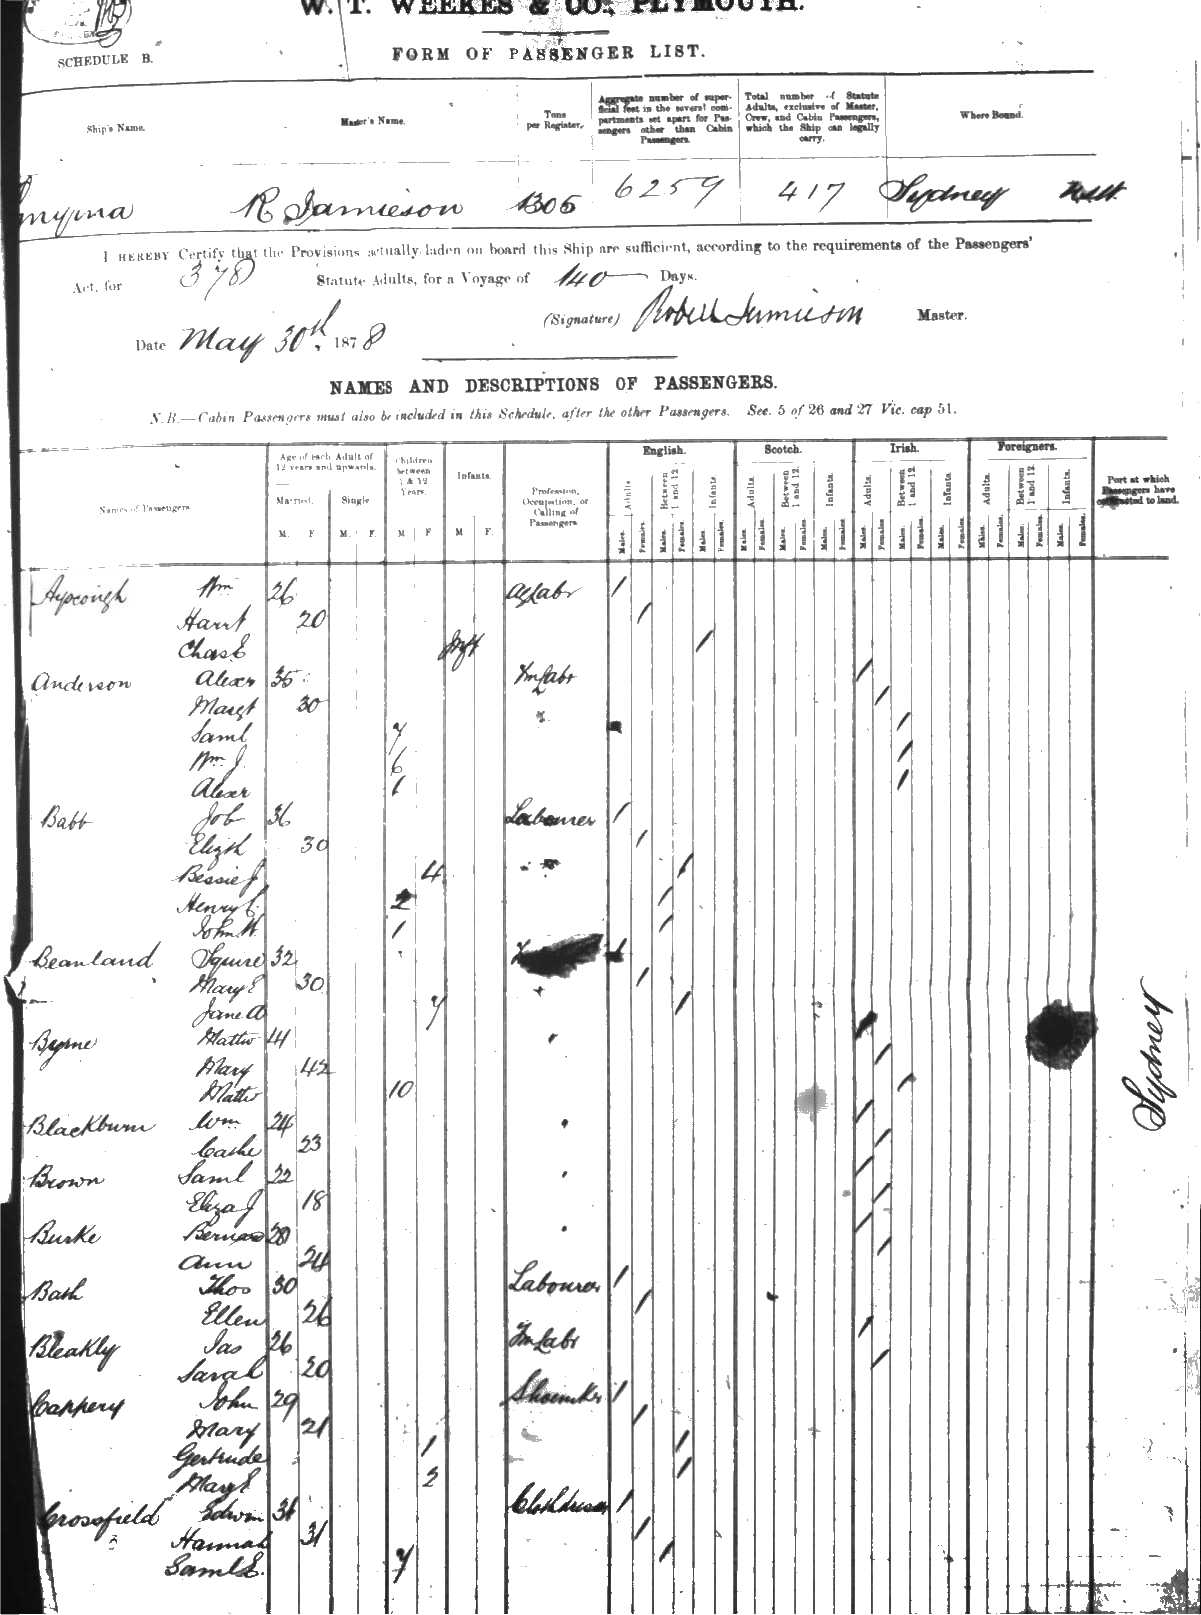 W. T. WEEKES & CO., PLYMOUTH.
SCHEDULE B.
FORM OF PASSENGER LIST.
Ship's Name. Master's Name. Tons per Register. Aggregate number of superficial feet in the several compartments set apart for Passengers other than Cabin Passengers. Total number of Statute Adults, exclusive of Master, Crew, and Cabin Passengers, which the Ship can legally carry. Where Bound.
Smyrna R Jamieson 1305 6259 417 Sydney NSW
I HEREBY Certify that the Provisions actually laden on board this Ship are sufficient, according to the requirements of the Passengers'
Act, for 378 Statute Adults, for a Voyage of 140 Days.
(Signature) Robert Jamieson Master.
Date May 30th. 1878
NAMES AND DESCRIPTIONS OF PASSENGERS.
N.B.—Cabin Passengers must also be included in this Schedule, after the other Passengers. Sec. 5 of 26 and 27 Vic. cap 51.
Names of Passengers. Age of each Adult of 12 years and upwards. Children between 1 & 12 Years. Infants. Profession, Occupation, or Calling of Passengers. English. Scotch. Irish. Foreigners. Port at which Passengers have contracted to land.
Married. Single
M. F M. F. M F M F.
Adults Between 1 and 12. Infants Adults. Between 1 and 12. Infants. Adults. Between 1 and 12. Infants. Adults. Between 1 and 12. Infants.
Males. Females. Males. Females. Males. Females. Males. Females. Males. Females. Males. Females. Males. Females. Males. Females. Males. Females. Males. Females. Males. Females. Males. Females.
Ayscough Wm 26 AgLabr /
Harrt 20 /
Chas E Inft /
Anderson Alexr 35 FmLabr /
Margt 30 /
Saml 7 /
Wm J 6 /
Alexr 1 /
Babb Job 36 Labourer /
Elizth 30 /
Bessie J 4 /
Henry C. 2 /
John W. 1 /
Beanland Squire 32 /
Mary E 30 /
Jane A 7 /
Byrne Mattw 41 " /
Mary 42 /
Mattw 10 /
Blackburn Wm 24 " /
Cathe 23 /
Brown Saml 22 " /
Eliza J 18 /
Burke Bernard 28 " /
Ann 24 /
Bath Thos 30 Labourer /
Ellen 26 /
Bleakly Jas 26 FmLabr /
Sarah 20 /
Cappery John 29 Shoemkr /
Mary 21 /
Gertrude 1 /
Mary E 2 /
Crossfield Edwin 31 Clothdresser /
Hannah 31 /
Saml E. 7 /
Sydney